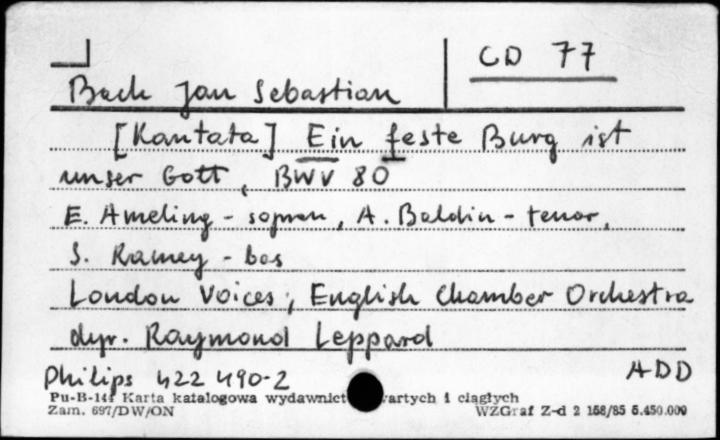 CD 77
Bach Jan Sebastian
[Kantata] Ein feste Burg ist
unser Gott, BWV 80
E. Ameling - sopran, A. Baldin - tenor,
S. Ramey - bas
London Voices, English Chamber Orchestra
dyr. Raymond Leppard
Philips 422 490-2 ADD
Pu-B-141 Karta katalogowa wydawnict artych i ciągłych
Zam. 697/DW/ON WZGraf Z-d 2 158/85 5.450.000